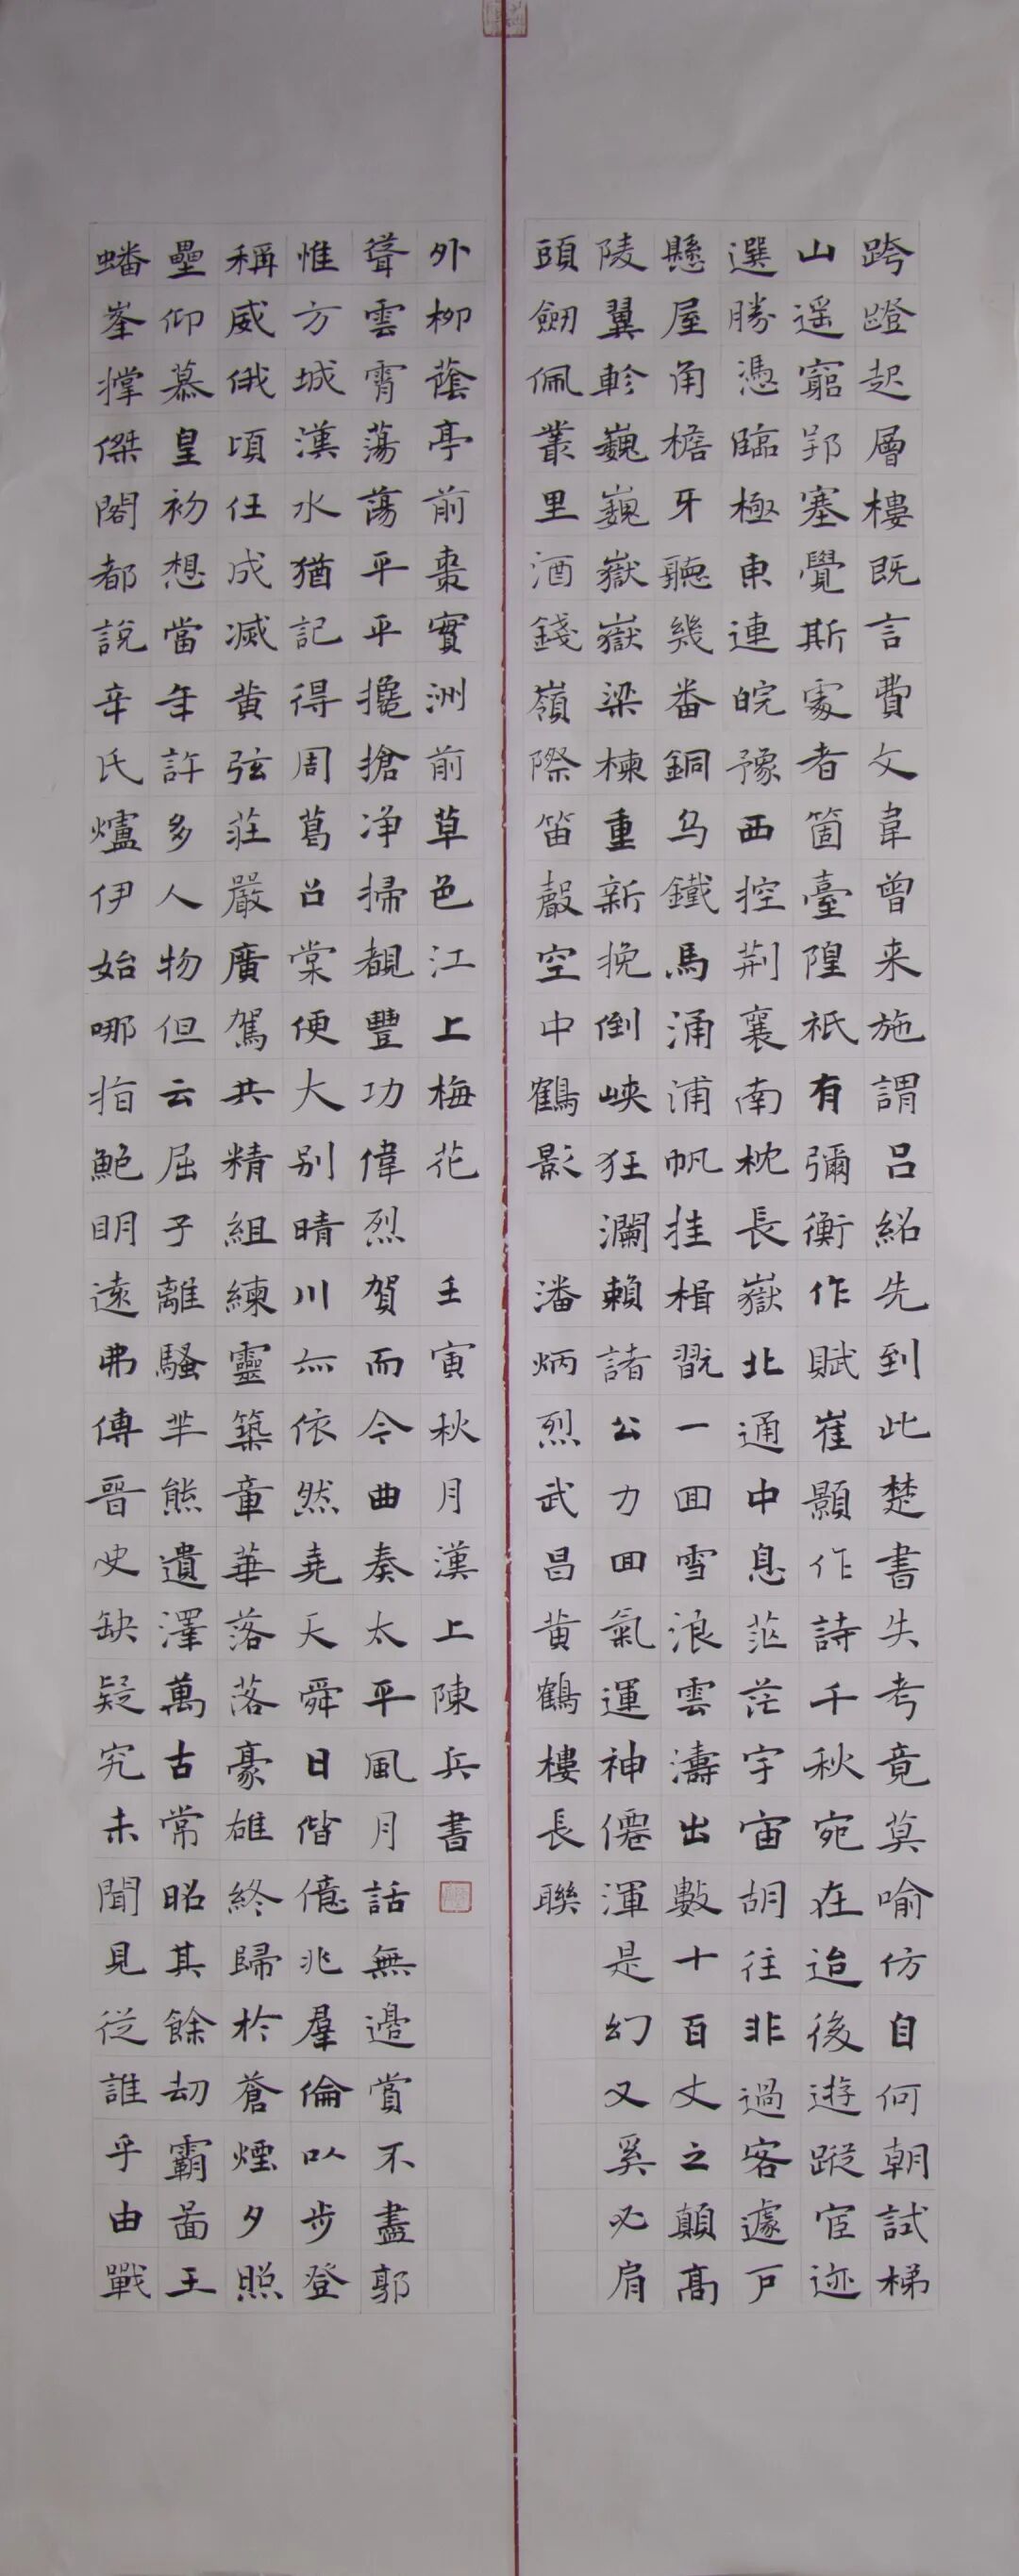 跨蹬起層樓既言費文韋曾来施謂吕紹先到此楚書失考竟莫喻仿自何朝試梯
山遥窮郢塞覺斯處者箇臺隍祇有彌衡作賦崔顥作詩千秋宛在迨後遊蹤宦迹
選勝憑臨極東連皖豫西控荆襄南枕長嶽北通中息茫茫宇宙胡往非過客遽戸
懸屋角檐牙聽幾番銅乌鐵馬涌浦帆挂楫翫一回雪浪雲濤出數十百丈之顛高
陵翼軫巍巍嶽嶽梁楝重新挽倒峽狂瀾賴諸公力回氣運神僊渾是幻又奚必肩
頭劒佩叢里酒錢嶺際笛聲空中鶴影 潘炳烈武昌黄鶴樓長聯
蟠峯撑傑閣都說辛氏爐伊始哪指鮑明遠弗傳晉史缺疑究未聞見從誰乎由戰
壘仰慕皇初想當年許多人物但云屈子離騷羋熊遺澤萬古常昭其餘刼霸圖王
稱威俄頃任成滅黄弦莊嚴廣駕共精組練靈築章華落落豪雄終歸於蒼煙夕照
惟方城漢水猶記得周葛召棠便大别晴川亦依然堯天舜日偕億兆羣倫以步登
聳雲霄蕩蕩平平攙搶净掃覩豐功偉烈賀而今曲奏太平風月話無邊賞不盡郭
外柳蔭亭前棗實洲前草色江上梅花 壬寅秋月漢上陳兵書